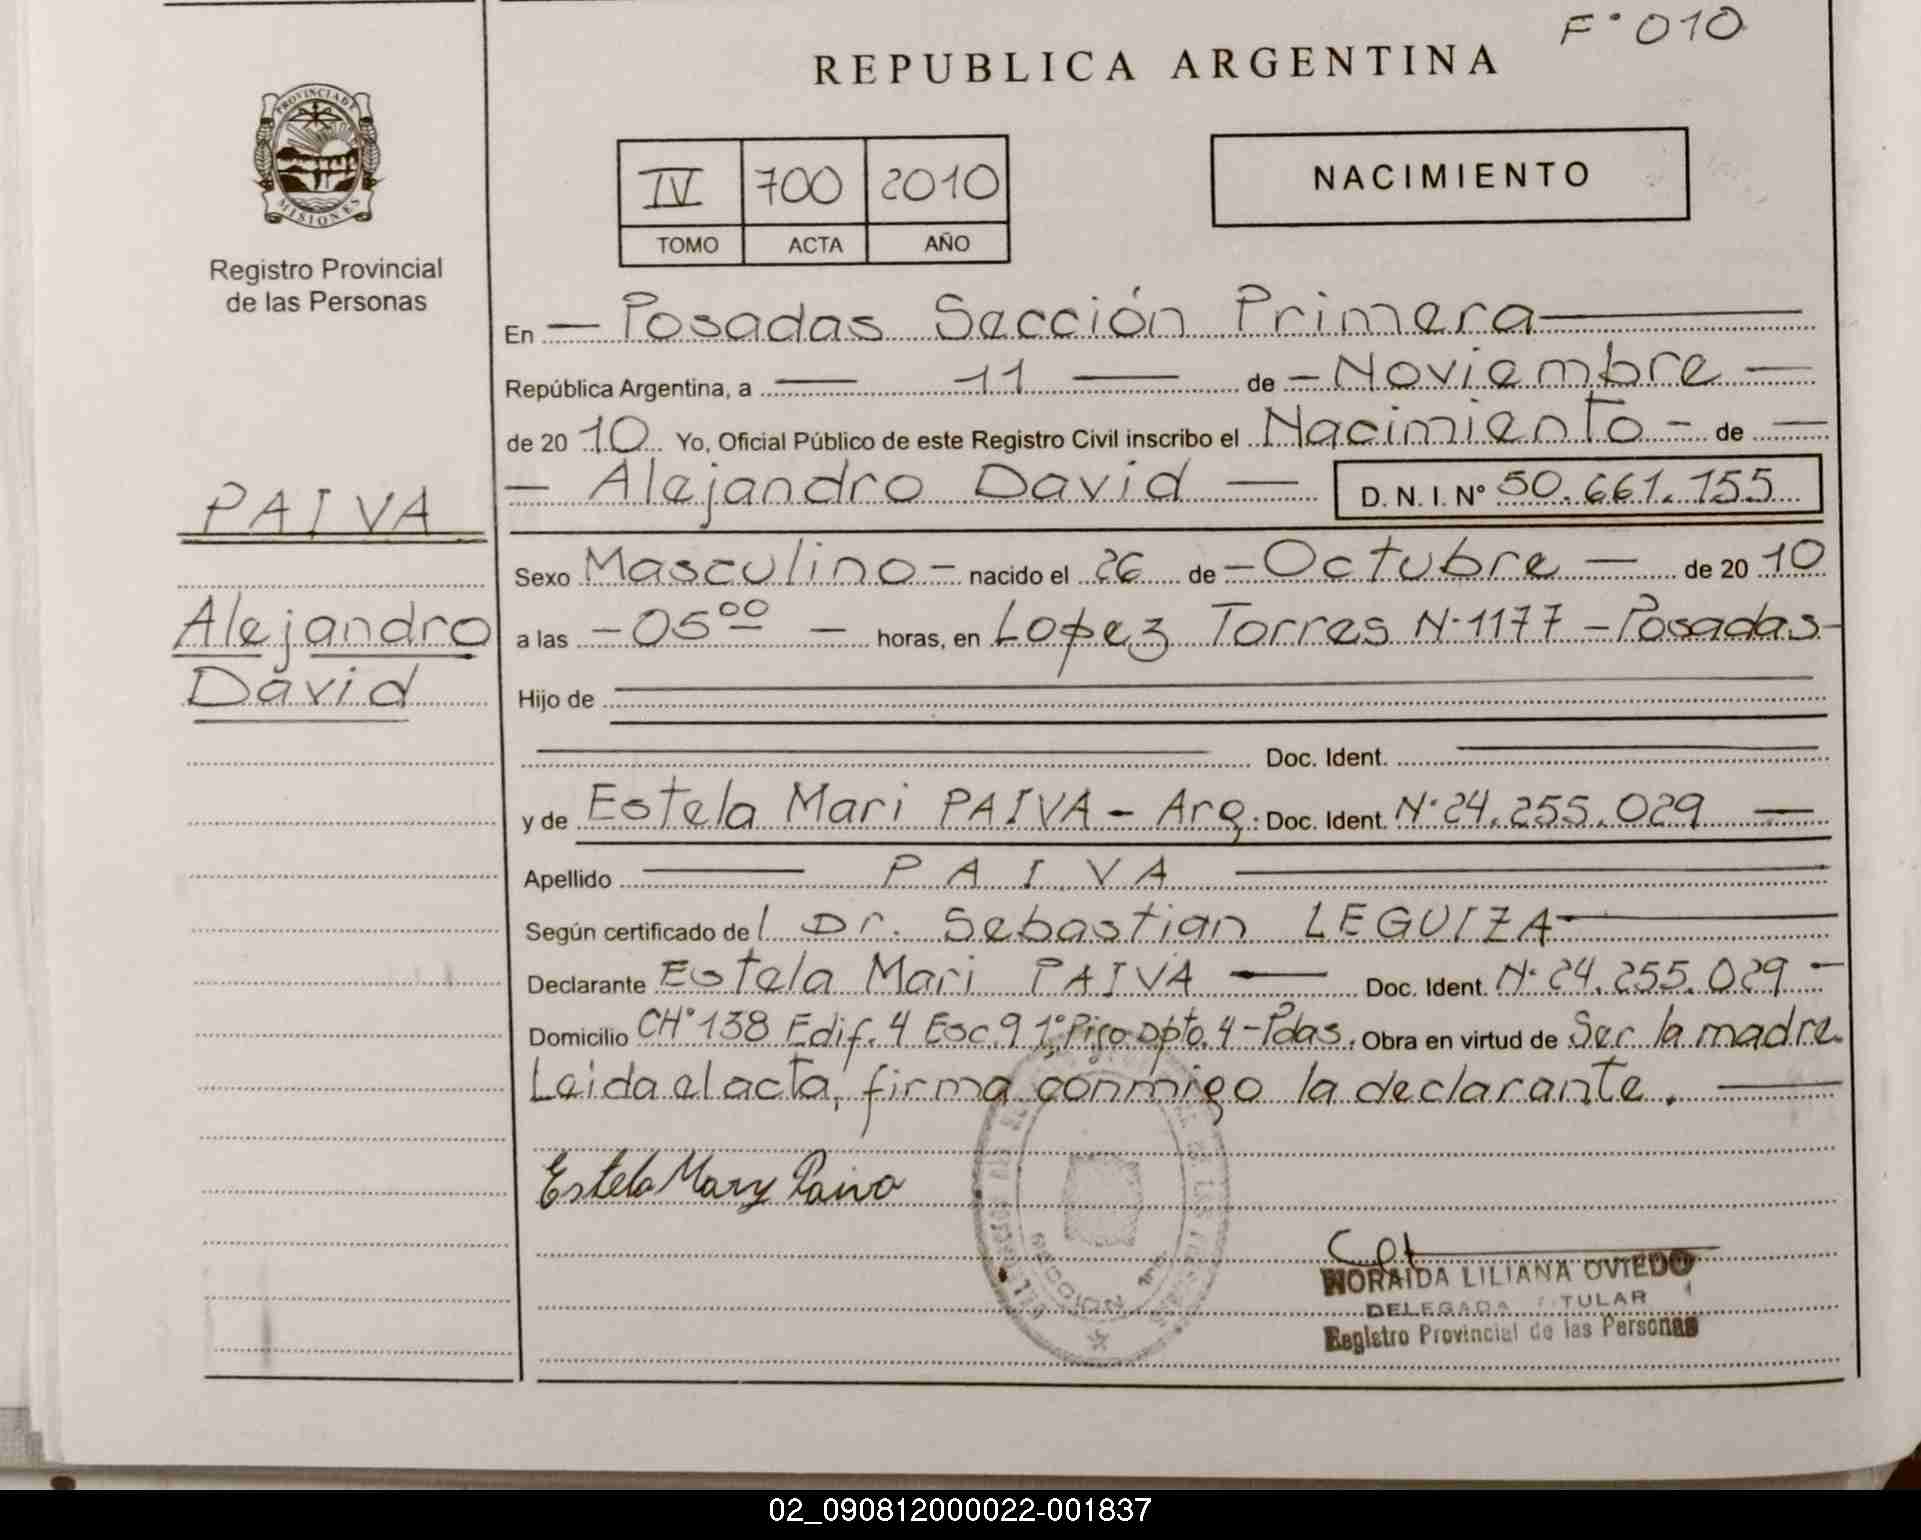 F° 010
REPUBLICA ARGENTINA
PROVINCIA DE
MISIONES
Registro Provincial
de las Personas
IV 700 2010
TOMO ACTA AÑO
NACIMIENTO
En Posadas Sección Primera
República Argentina, a 11 de Noviembre
de 20 10 Yo, Oficial Público de este Registro Civil inscribo el Nacimiento de
Alejandro David D. N. I. N° 50.661.155
PAIVA
Alejandro
David
Sexo Masculino nacido el 26 de Octubre de 20 10
a las 05 00 horas, en Lopez Torres N° 1177 - Posadas
Hijo de
Doc. Ident.
y de Estela Mari PAIVA - Arg. Doc. Ident. N° 24.255.029
Apellido PAIVA
Según certificado del Dr. Sebastian LEGUIZA
Declarante Estela Mari PAIVA Doc. Ident. N° 24.255.029
Domicilio CH° 138 Edif. 4 Esc. 9 1° Piso Dpto. 4 - Pdas. Obra en virtud de Ser la madre.
Leida el acta, firma conmigo la declarante.
Estela Mary Paiva
NORAIDA LILIANA OVIEDO
DELEGADA TITULAR
Registro Provincial de las Personas
02_090812000022-001837